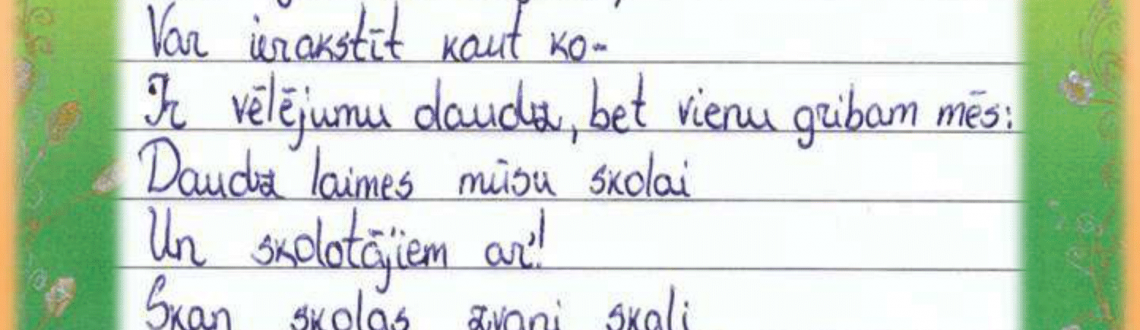 Var ierakstīt kaut ko-
Ir vēlējumu daudz, bet vienu gribam mēs:
Daudz laimes mūsu skolai
Un skolotājiem ar'!
Skan skolas zvani skaļi